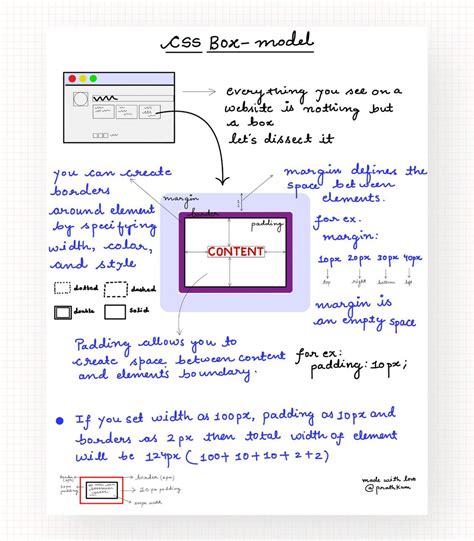 CSS Box-model
everything you see on a
website is nothing but
a box
let's dissect it
you can create
borders
around element
by specifying
width, color,
and style
dotted
dashed
double
solid
margin
border
padding
CONTENT
margin defines the
space between
elements.
for ex.
margin:
10px 20px 30px 40px
top right bottom left
margin is
an empty space
Padding allows you to
create space between content
and elements boundary.
for ex:
padding: 10px;
If you set width as 100px, padding as 10px and
borders as 2px then total width of element
will be 124px (100+10+10+2+2)
border (2px)
10px padding
padding
100px width
made with love
@prathkum